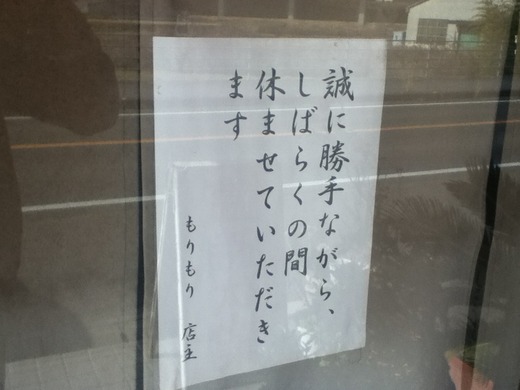 誠に勝手ながら、
しばらくの間
休ませていただき
ます
もりもり 店主